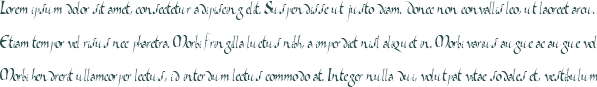 Lorem ipsum dolor sit amet, consectetur adipiscing elit. Suspendisse ut justo diam. Donec non convallis leo, ut laoreet arcu.
Etiam tempor vel risus nec pharetra. Morbi fringilla luctus nibh, a imperdiet nisl aliquet in. Morbi varius augue ac augue vol
Morbi hendrerit ullamcorper lectus, id interdum lectus commodo at. Integer nulla dui, volutpat vitae sodales et, vestibulum